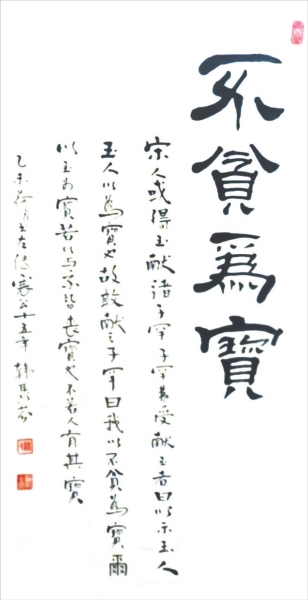 不貪爲寶
宋人或得玉献諸子罕子罕弗受献玉者曰以示玉人
玉人以為寶也故敢献之子罕曰我以不貪為寶爾
以玉為寶若以与我皆丧寶也不若人有其寶
乙未荷月左传襄公十五年 韩